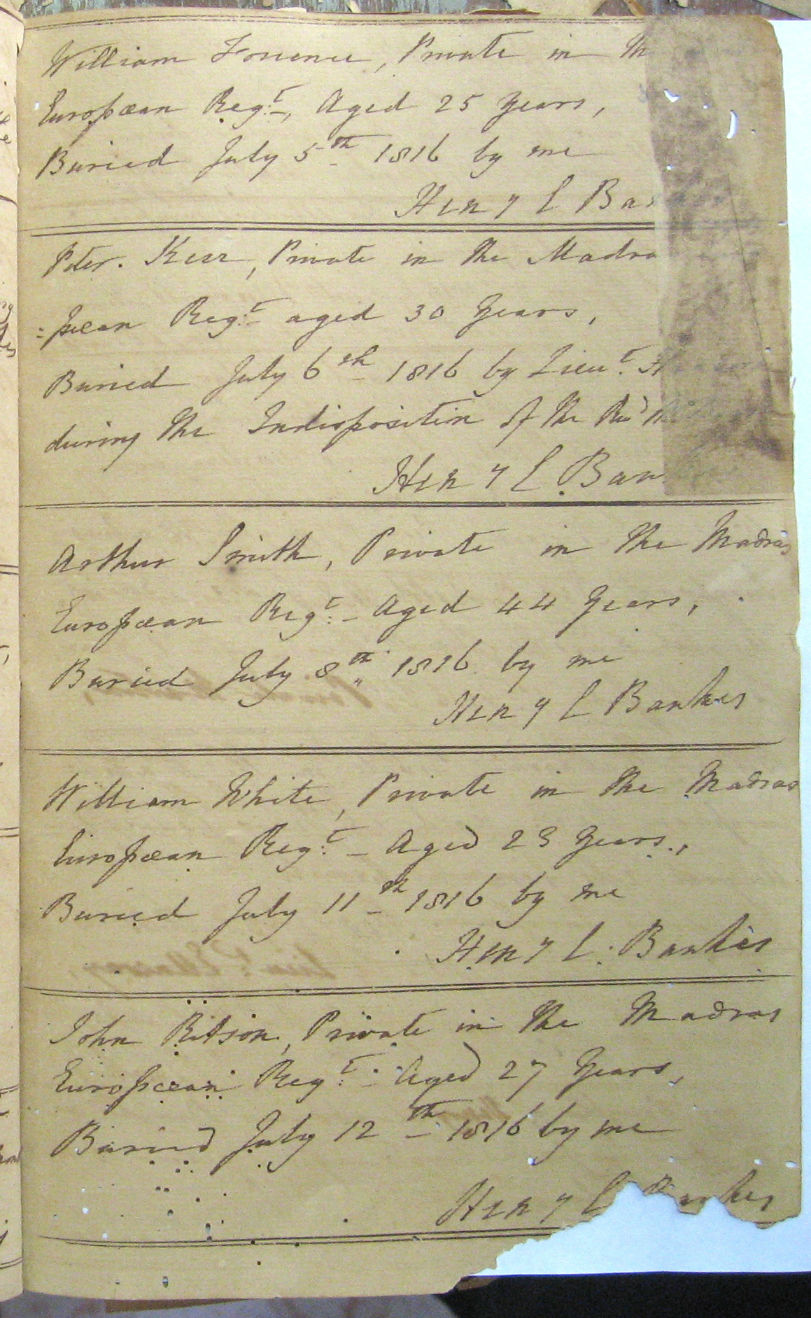 William , Private in
European Regt, Aged 25 Years,
Buried July 5th 1816 by me
Henry L Ban
Peter. Kerr, Private in the Madra
=pean Regt aged 30 Years,
Buried July 6th 1816 by Lieut.
during the Indisposition of the Revd
Henry L. Ban
Arthur Smith, Private in the Madras
European Regt - Aged 44 Years,
Buried July 8th 1816 by me
Henry L Bankes
William White, Private in the Madras
European Regt - Aged 23 Years,
Buried July 11th 1816 by me
Henry L. Bankes
John Bitson, Private in the Madras
European Regt - Aged 27 Years,
Buried July 12th 1816 by me
Henry L Bankes